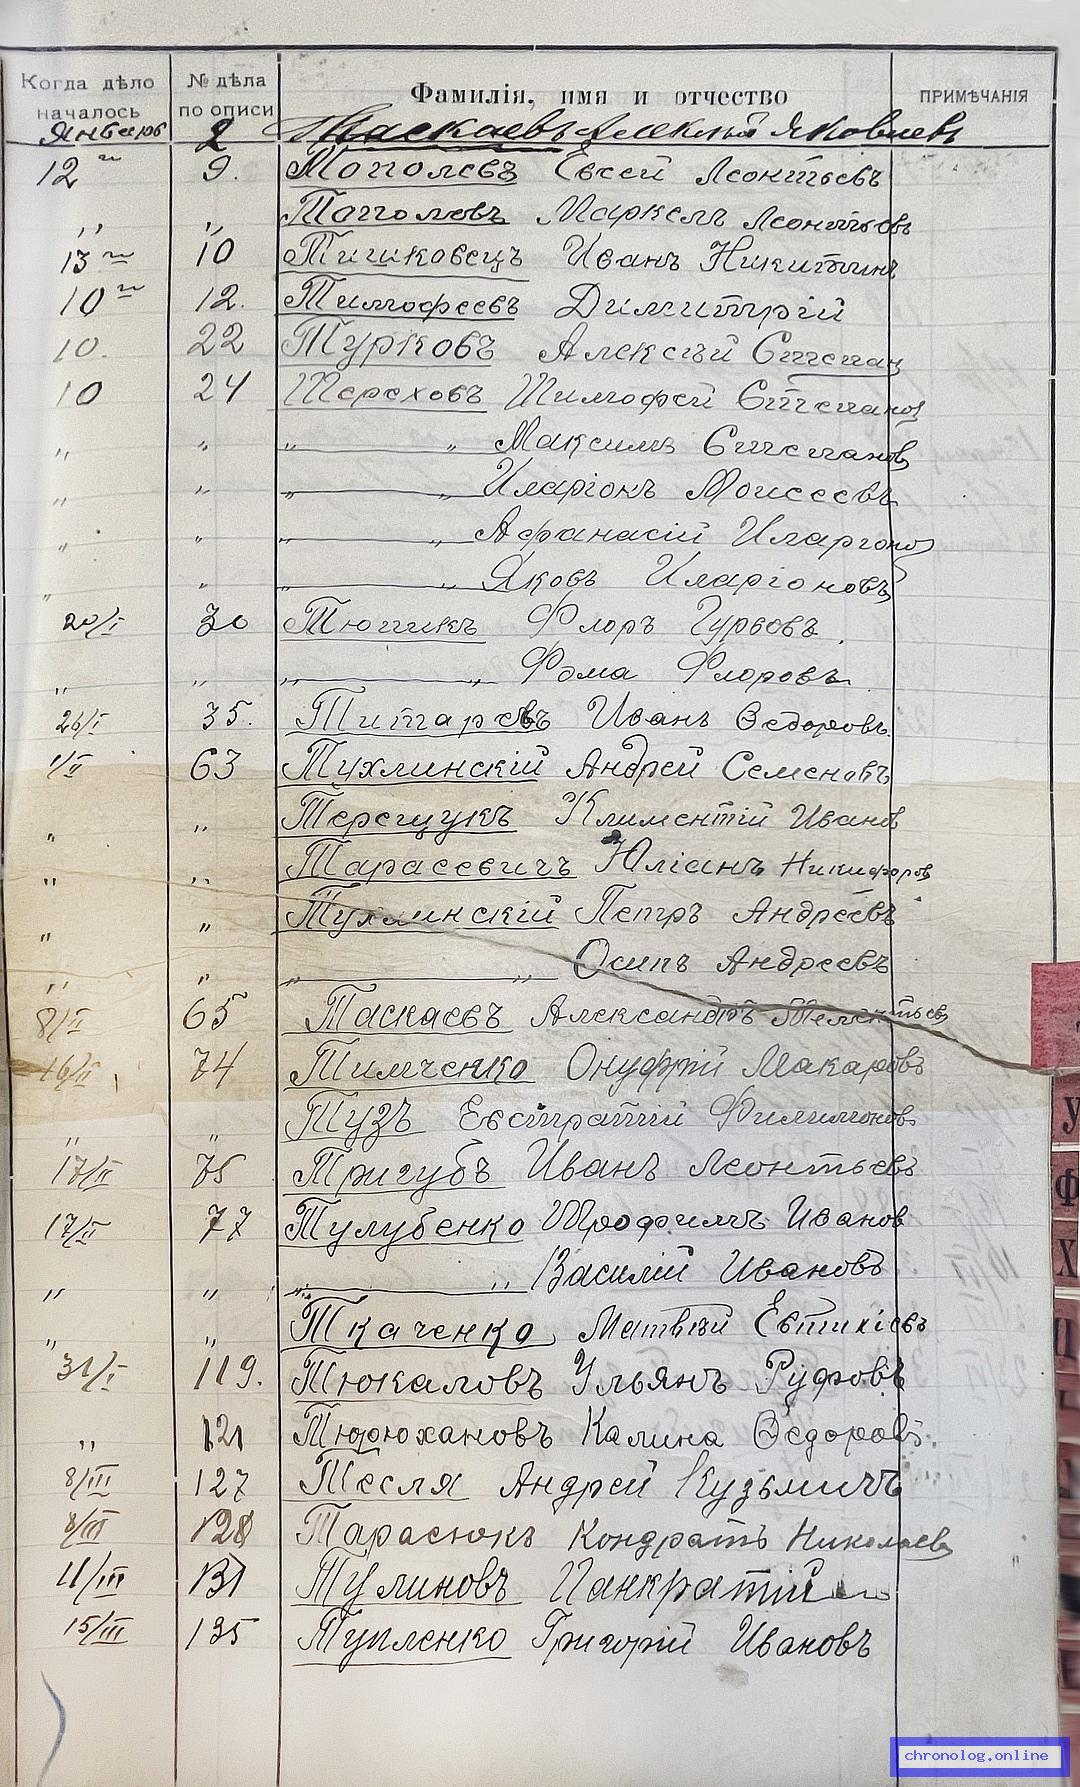 Когда дѣло началось № дѣла по описи Фамилія, имя и отчество ПРИМѢЧАНІЯ
Январь 2 Таскаевъ Алексѣй Яковлевъ
12 го 9. Тополевъ Евсей Леонтьевъ
„ „ Тополовъ Маркелъ Леонтьевъ
13 го 10 Тишковецъ Иванъ Никитинъ
10 го 12. Тимофеевъ Димитрій
10. 22 Турковъ Алексѣй Степан
10 24 Тереховъ Тимофей Степанов
„ „ „ „ Максимъ Степановъ
„ „ „ „ Иларіонъ Моисеевъ
„ „ „ „ Афанасій Иларіоно
„ „ „ „ Яковъ Иларіоновъ
20/I 30 Тюпикъ Флоръ Гурьевъ
„ „ „ „ Фома Флоровъ
26/I 35. Титаревъ Иванъ Ѳедоровъ
1/II 63 Тухлинскій Андрей Семеновъ
„ „ Терещукъ Климентій Иванов
„ „ Тарасевичъ Юліанъ Никифоров
„ „ Тухлинскій Петръ Андреевъ
„ „ „ „ Осипъ Андреевъ
8/II 65 Таскаевъ Александръ Мелентьев
16/II 74 Тимченко Онуфрій Макаровъ
„ „ Тузъ Евстратій Филимонов
17/II 75 Тригубъ Иванъ Леонтьевъ
17/II 77 Тулубенко Трофимъ Иванов
„ „ „ „ Василій Ивановъ
„ „ Ткаченко Матвѣй Евтихіевъ
31/I 119. Тюкаловъ Ульянъ Руфовъ
„ 121 Тюрюхановъ Калина Ѳедоровъ.
8/III 127 Тесля Андрей Кузьмичъ
8/III 128 Тарасюкъ Кондратъ Николаев
11/III 131 Тулиновъ Панкратій
15/III 135 Тупленко Григорій Ивановъ
У
Ф
Х
chronolog.online